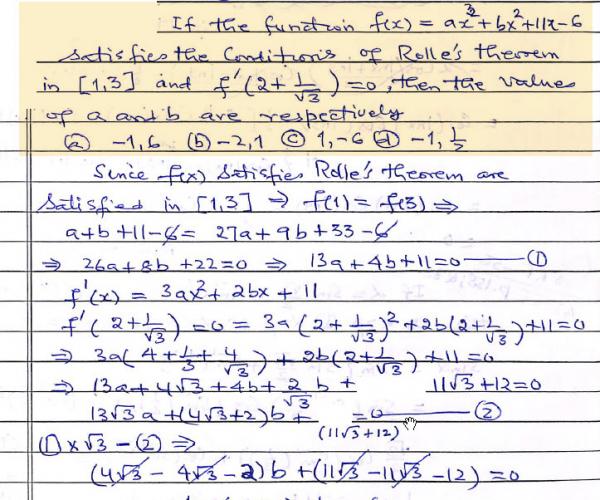 If the function f(x) = ax³+bx²+11x-6
satisfies the Conditions of Rolle's theorem
in [1,3] and f'(2+1/√3)=0, then the values
of a and b are respectively
(a) -1,6 (b) -2,1 (c) 1,-6 (d) -1, 1/2
Since f(x) satisfies Rolle's theorem are
satisfied in [1,3] ⇒ f(1) = f(3) ⇒
a+b+11-6 = 27a+9b+33-6
⇒ 26a+8b+22=0 ⇒ 13a+4b+11=0 — (1)
f'(x) = 3ax²+2bx+11
f'(2+1/√3)=0 = 3a(2+1/√3)²+2b(2+1/√3)+11=0
⇒ 3a(4+1/3+4/√3)+2b(2+1/√3)+11=0
⇒ 13a+4√3+4b+2/√3 b+ 11√3+12=0
13√3a+(4√3+2)b+ =0 — (2)
(11√3+12)
(1)×√3-(2) ⇒
(4√3-4√3-2)b+(11√3-11√3-12)=0